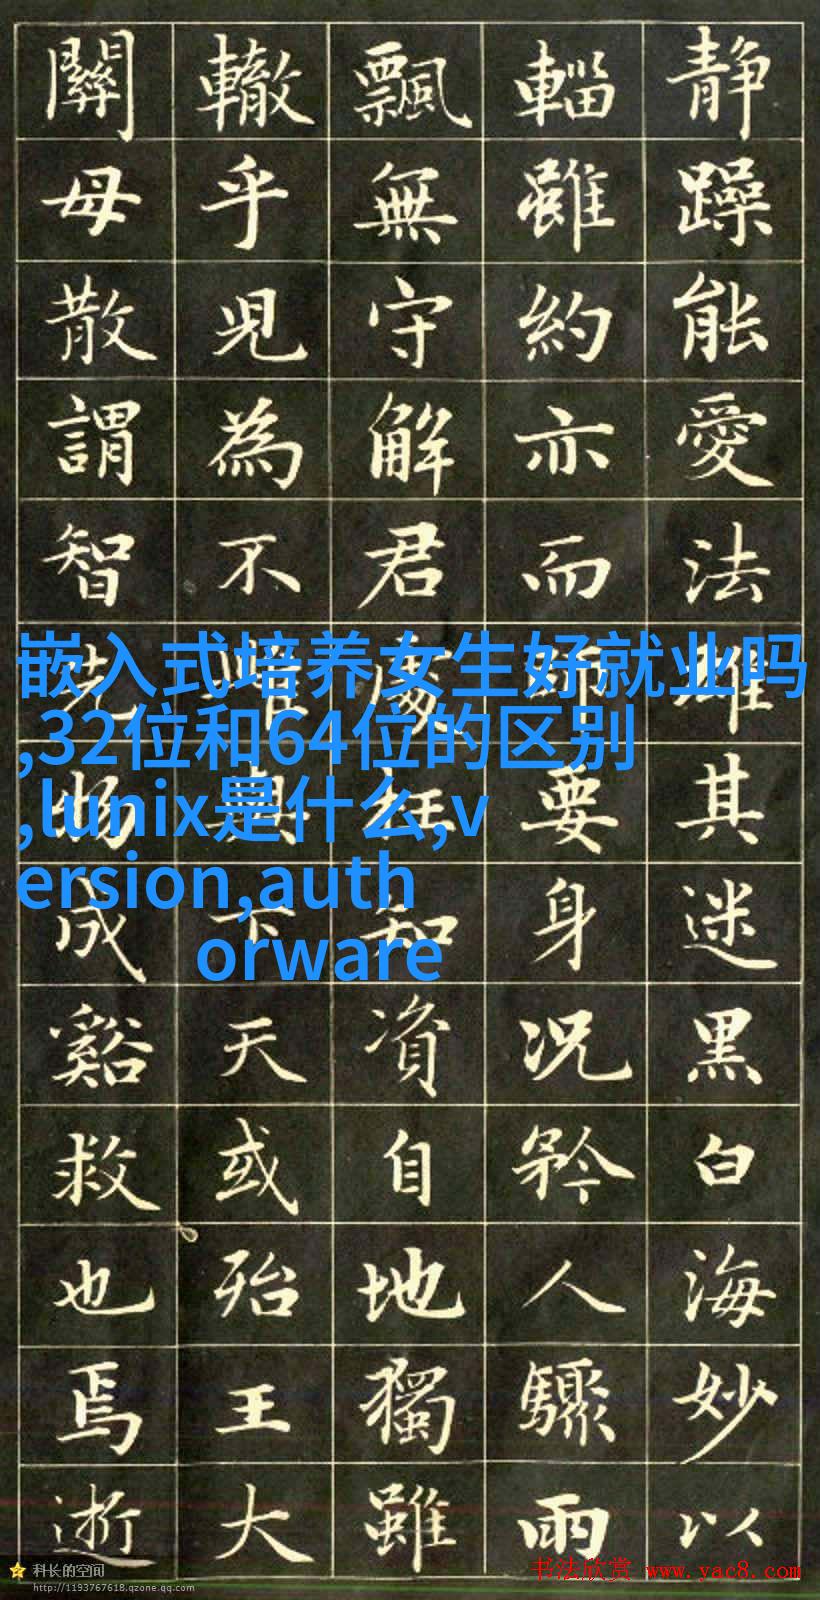 静躁能愛法雄其迷黑白海妙以
輜雖約亦而師要身况矜人驟雨
飄無守解君處知資自地獨雖
轍乎見為不下天或殆王大
關母散謂智先物成谿救也焉逝
嵌入式培养女生好就业吗
,32位和64位的区别
,lunix是什么,v
ersion,auth
orware
科长的空间
http://1193767618.qzone.qq.com
书法欣赏 www.yac8.com